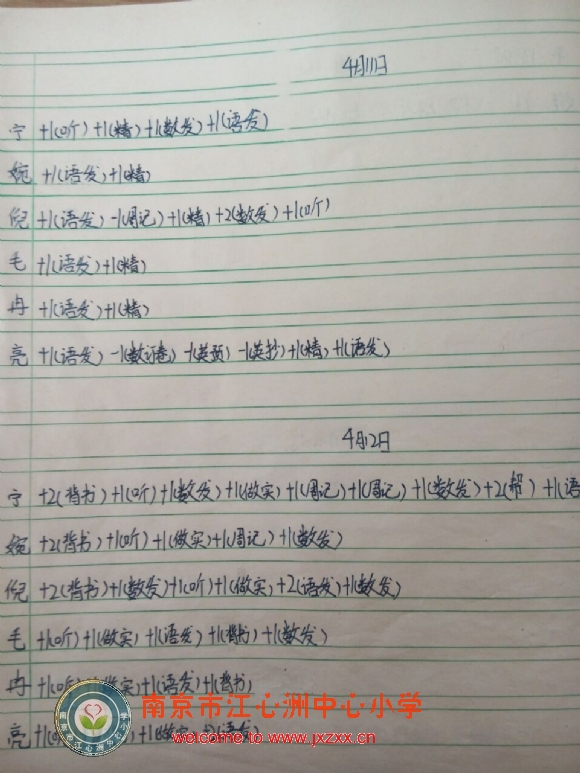 4月11日
宁 +1(听) +1(精) +1(数发) +1(语发)
婉 +1(语发) +1(精)
倪 +1(语发) -1(周记) +1(精) +2(数发) +1(听)
毛 +1(语发) +1(精)
冉 +1(语发) +1(精)
亮 +1(语发) -1(数订卷) -1(英预) -1(英抄) +1(精) +1(语发)
4月12日
宁 +2(背书) +1(听) +1(数发) +1(做实) +1(周记) +1(周记) +1(数发) +2(帮) +1(语
婉 +2(背书) +1(听) +1(做实) +1(周记) +1(数发)
倪 +2(背书) +1(数发) +1(听) +1(做实) +2(语发) +1(数发)
毛 +1(听) +1(做实) +1(语发) +1(背书) +1(数发)
冉 +1(听) 做实) +1(语发) +1(背书)
南京市江心洲中心小学
亮 +1( +1(做实) 语发)
welcome to www.jxzxx.cn
南京市江心洲中心小学